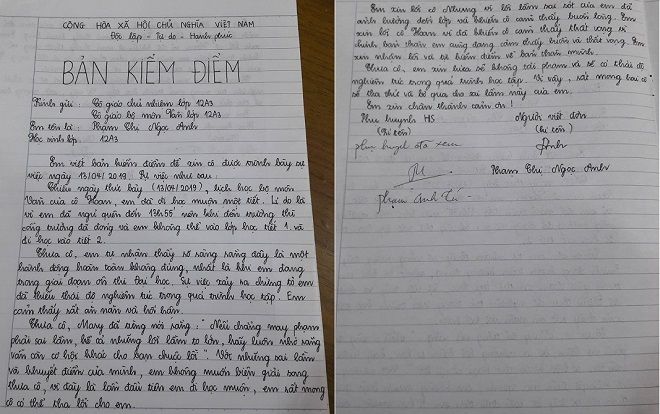 CỘNG HÒA XÃ HỘI CHỦ NGHĨA VIỆT NAM
Độc lập - Tự do - Hạnh phúc
BẢN KIỂM ĐIỂM
Kính gửi : Cô giáo chủ nhiệm lớp 12A3
Cô giáo bộ môn Văn lớp 12A3
Em tên là : Phạm Thị Ngọc Anh
Học sinh lớp : 12A3
Em viết bản kiểm điểm để xin cô được trình bày sự
việc ngày 13/04/2019. Sự việc như sau :
Chiều ngày thứ bảy (13/04/2019), lịch học bộ môn
Văn của cô Hoan, em đã đi học muộn một tiết. Lí do là
vì em đã ngủ quên đến 13h55' nên khi đến trường thì
cổng trường đã đóng và em không thể vào lớp học tiết 1 và
đi học vào tiết 2.
Thưa cô, em tự nhận thấy rõ ràng rằng đây là một
hành động hoàn toàn không đúng, nhất là khi em đang
trong giai đoạn ôn thi Đại học. Sự việc xảy ra chứng tỏ em
đã thiếu thái độ nghiêm túc trong quá trình học tập. Em
cảm thấy rất ăn năn và hối hận.
Thưa cô, Mary đã từng nói rằng : " Nếu chẳng may phạm
phải sai lầm, kể cả những lỗi lầm to lớn, hãy luôn nhớ rằng
vẫn còn cơ hội khác cho bạn chuộc lỗi ". Với những sai lầm
và khuyết điểm của mình, em không muốn biện giải song
thưa cô, vì đây là lần đầu tiên em đi học muộn, em rất mong
cô có thể tha lỗi cho em.
Em xin lỗi cô Nhung vì lỗi lầm sai sót của em đã
ảnh hưởng đến lớp và khiến cô cảm thấy buồn lòng. Em
xin lỗi cô Hoan vì đã khiến cô cảm thấy thất vọng vì
chính bản thân em cũng đang cảm thấy buồn và thất vọng. Em
xin nhận lỗi và tự kiểm điểm về bản thân mình.
Thưa cô, em xin hứa sẽ không tái phạm và sẽ có thái độ
nghiêm túc trong quá trình học tập. Vì vậy, rất mong hai cô
sẽ tha thứ và bỏ qua cho sai lầm này của em.
Em xin chân thành cảm ơn !
Phụ huynh HS Người viết đơn
(Kí tên) (Kí tên)
phụ huynh đã xem Anh
Phạm Thị Ngọc Anh
Phạm Anh Tú